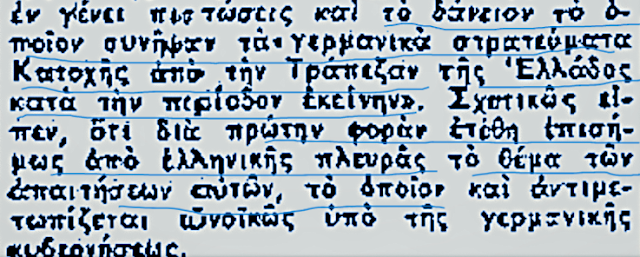 ἐν γένει πιστώσεις καὶ τὸ δάνειον τὸ ὁ-
ποῖον συνῆψαν τὰ γερμανικὰ στρατεύματα
Κατοχῆς ἀπὸ τὴν Τράπεζαν τῆς Ἑλλάδος
κατὰ τὴν περίοδον ἐκείνην». Σχετικῶς εἶ-
πεν, ὅτι διὰ πρώτην φορὰν ἐτέθη ἐπισή-
μως ἀπὸ ἑλληνικῆς πλευρᾶς τὸ θέμα τῶν
ἀπαιτήσεων αὐτῶν, τὸ ὁποῖον καὶ ἀντιμε-
τωπίζεται εὐνοϊκῶς ὑπὸ τῆς γερμανικῆς
κυβερνήσεως.